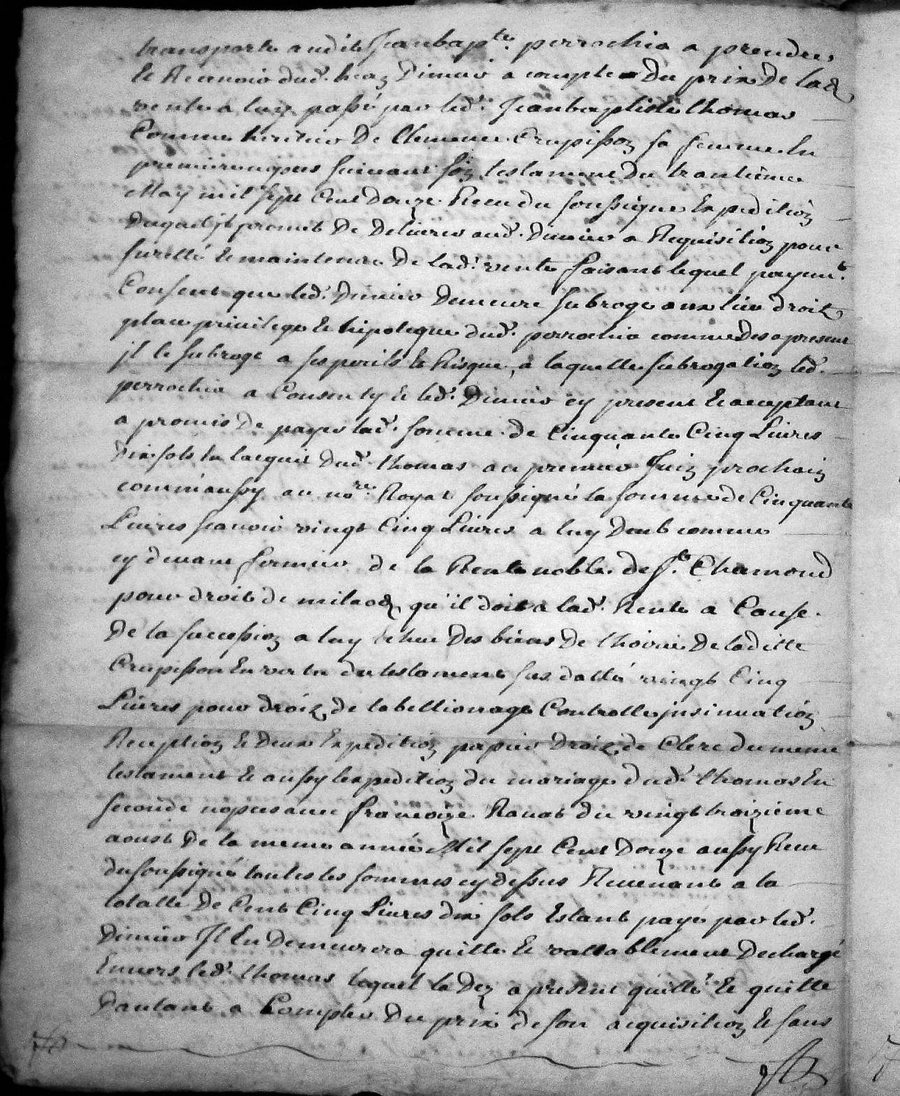 transporte audit Jeanbapte. perrochia a prendre,
et Recevoir dud. Dimier a compte du prix de lad.
vente a luy passé par led. Jeanbaptiste thomas
Comme heritier De Clemence Crapisson sa femme En
premieres nopces suivant son testament du trantieme
May mil sept Cent Douze Receu du soussigné Expedition
duquel promet De Delivrer aud. Dimier a Requisition pour
suretté et maintenue De lad. vente faisant lequel payemt.
Consent que led. Dimier Demeure subrogé aux lieu droit
place privilege et hipoteque dud. perrochia comme des apresent
jl le subroge a ses perils et Risque, a laquelle subrogation led.
perrochia a Consenty et led. Dimier cy present et acceptant
a promis de payer lad. somme de Cinquante Cinq Livres
Dix sols En lacquit dud. thomas au premier Juin prochain
comm'aussy au nore. Royal soussigné la somme de Cinquante
Livres scavoir vingt Cinq Livres a luy Deub comme
cy devant fermier de la Rente noble de St. Chamond
pour droit de milaod qu'il doit a lad. Rente a Cause
De la succession a luy Echue Des biens de l'hoirie De laditte
Crapisson En vertu du testament sus datté vingt Cinq
Livres pour droit de tabellionage Controlle jnsinuation
Reception et Deux Expedition papier Droit de Clerc du meme
testament et aussy lexpedition du mariage dud. thomas En
seconde nopces avec francoize Ravat du vingt troizieme
aoust De la meme année Mil sept Cent Douze aussy Receu
du soussigné toutes les sommes cy dessus Revenant a la
totalle De Cent Cinq Livres dix sols Estant payé par led.
Dimier Il En Demeurera quitte et vallablement Dechargé
Envers led. thomas lequel la Dez a present quitté et quitte
Dautant a Compte Du prix de son acquisition et sans